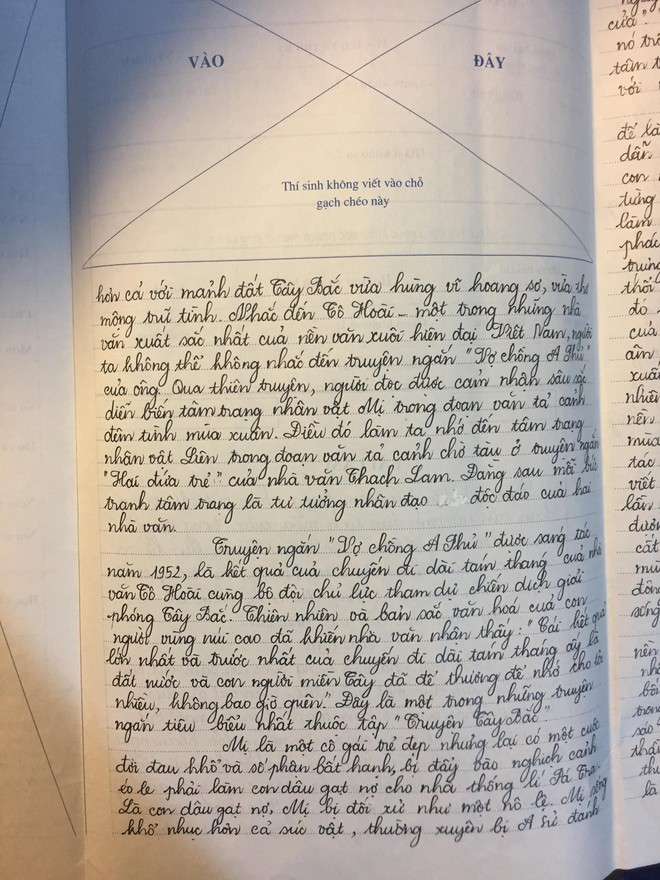 VÀO
ĐÂY
Thí sinh không viết vào chỗ
gạch chéo này
hơn cả với mảnh đất Tây Bắc vừa hùng vĩ hoang sơ, vừa thơ
mộng trữ tình. Nhắc đến Tô Hoài – một trong những nhà
văn xuất sắc nhất của nền văn xuôi hiện đại Việt Nam, người
ta không thể không nhắc đến truyện ngắn "Vợ chồng A Phủ"
của ông. Qua thiên truyện, người đọc được cảm nhận sâu sắc
diễn biến tâm trạng nhân vật Mị trong đoạn văn tả cảnh
đêm tình mùa xuân. Điều đó làm ta nhớ đến tâm trạng
nhân vật Liên trong đoạn văn tả cảnh chờ tàu ở truyện ngắn
"Hai đứa trẻ" của nhà văn Thạch Lam. Đằng sau mỗi bức
tranh tâm trạng là tư tưởng nhân đạo độc đáo của hai
nhà văn.
Truyện ngắn "Vợ chồng A Phủ" được sáng tác
năm 1952, là kết quả của chuyến đi dài tám tháng của nhà
văn Tô Hoài cùng bộ đội chủ lực tham dự chiến dịch giải
phóng Tây Bắc. Thiên nhiên và bản sắc văn hoá của con
người vùng núi cao đã khiến nhà văn nhận thấy: "Cái kết quả
lớn nhất và trước nhất của chuyến đi dài tám tháng ấy là
đất nước và con người miền Tây đã để thương để nhớ cho tôi
nhiều, không bao giờ quên." Đây là một trong những truyện
ngắn tiêu biểu nhất thuộc tập "Truyện Tây Bắc".
Mị là một cô gái trẻ đẹp nhưng lại có một cuộc
đời đau khổ và số phận bất hạnh, bị đẩy vào nghịch cảnh
éo le phải làm con dâu gạt nợ cho nhà thống lí Pá Tra.
Là con dâu gạt nợ, Mị bị đối xử như một nô lệ. Mị sống
khổ nhục hơn cả súc vật, thường xuyên bị A Sử đánh